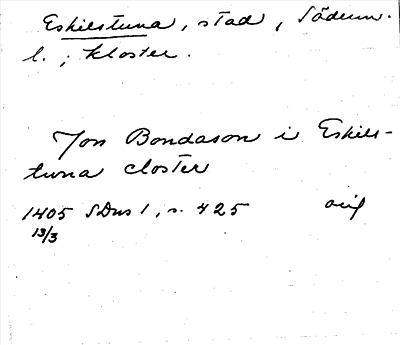 Eskilstuna, stad, Söderm.
l.; kloster.
Jon Bondason i Eskils-
tuna closter
1405 SDns 1, s. 425 orig
13/3